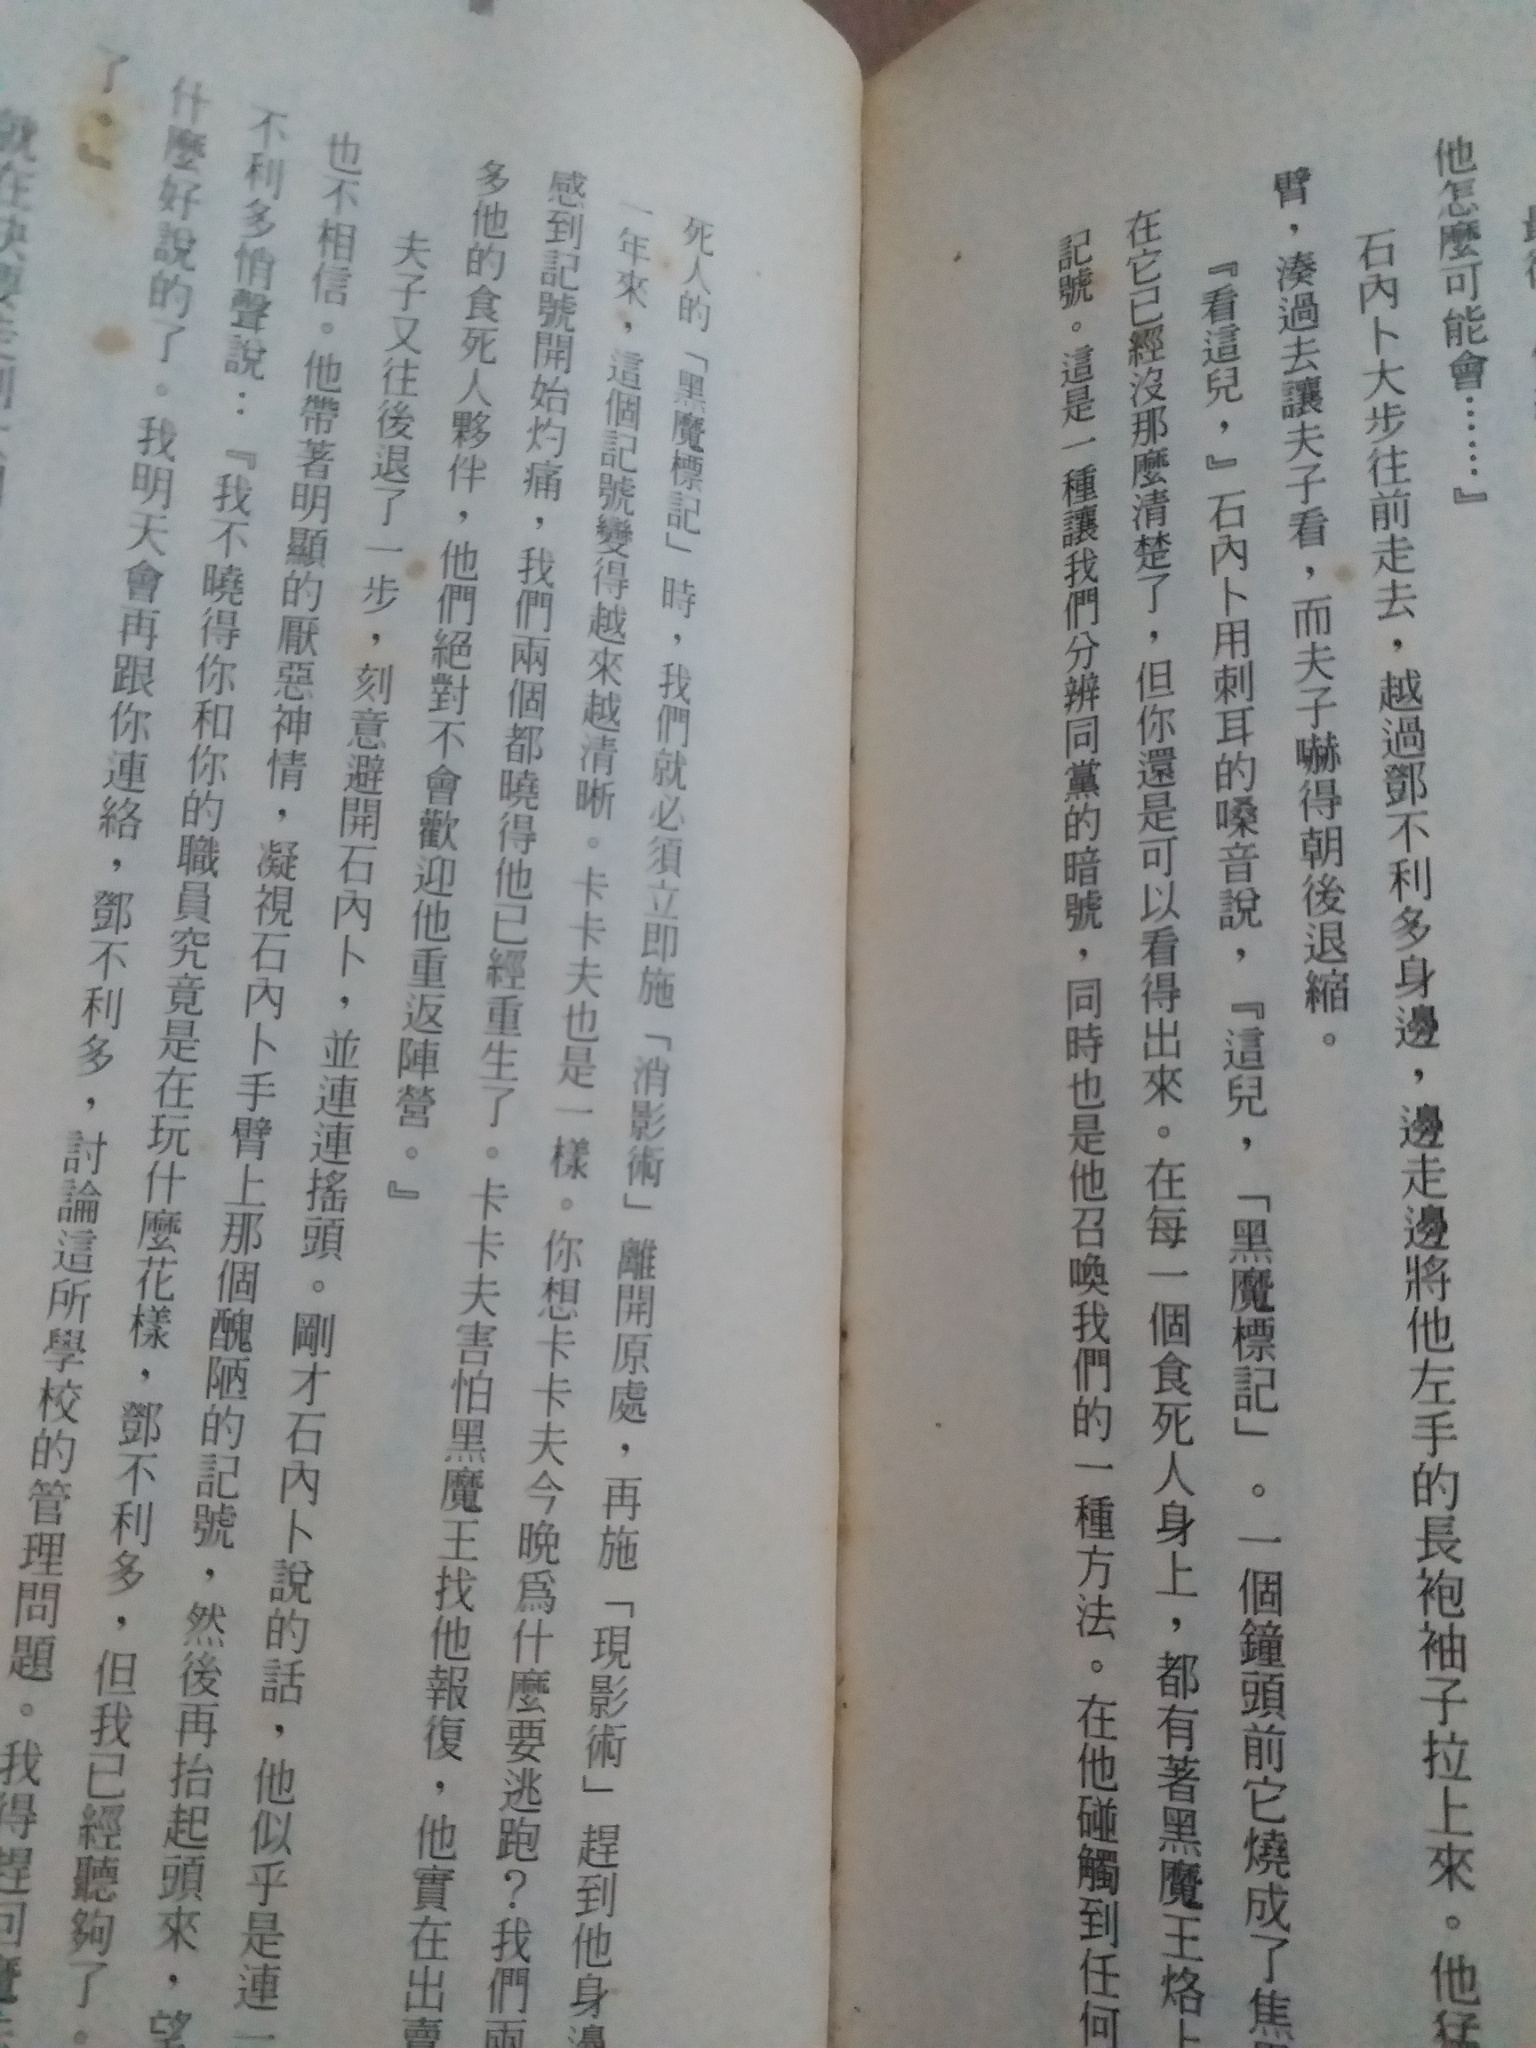 他怎麼可能會……』
石內卜大步往前走去，越過鄧不利多身邊，邊走邊將他左手的長袍袖子拉上來。他猛
臂，湊過去讓夫子看，而夫子嚇得朝後退縮。
『看這兒，』石內卜用刺耳的嗓音說，『這兒，「黑魔標記」。一個鐘頭前它燒成了焦
在它已經沒那麼清楚了，但你還是可以看得出來。在每一個食死人身上，都有著黑魔王烙上
記號。這是一種讓我們分辨同黨的暗號，同時也是他召喚我們的一種方法。在他碰觸到任何
死人的「黑魔標記」時，我們就必須立即施「消影術」離開原處，再施「現影術」趕到他身邊
一年來，這個記號變得越來越清晰。卡卡夫也是一樣。你想卡卡夫今晚為什麼要逃跑？我們兩
感到記號開始灼痛，我們兩個都曉得他已經重生了。卡卡夫害怕黑魔王找他報復，他實在出賣
多他的食死人夥伴，他們絕對不會歡迎他重返陣營。』
夫子又往後退了一步，刻意避開石內卜，並連連搖頭。剛才石內卜說的話，他似乎是連一
也不相信。他帶著明顯的厭惡神情，凝視石內卜手臂上那個醜陋的記號，然後再抬起頭來，望
不利多悄聲說：『我不曉得你和你的職員究竟是在玩什麼花樣，鄧不利多，但我已經聽夠了。
什麼好說的了。我明天會再跟你連絡，鄧不利多，討論這所學校的管理問題。我得趕回魔
了。』